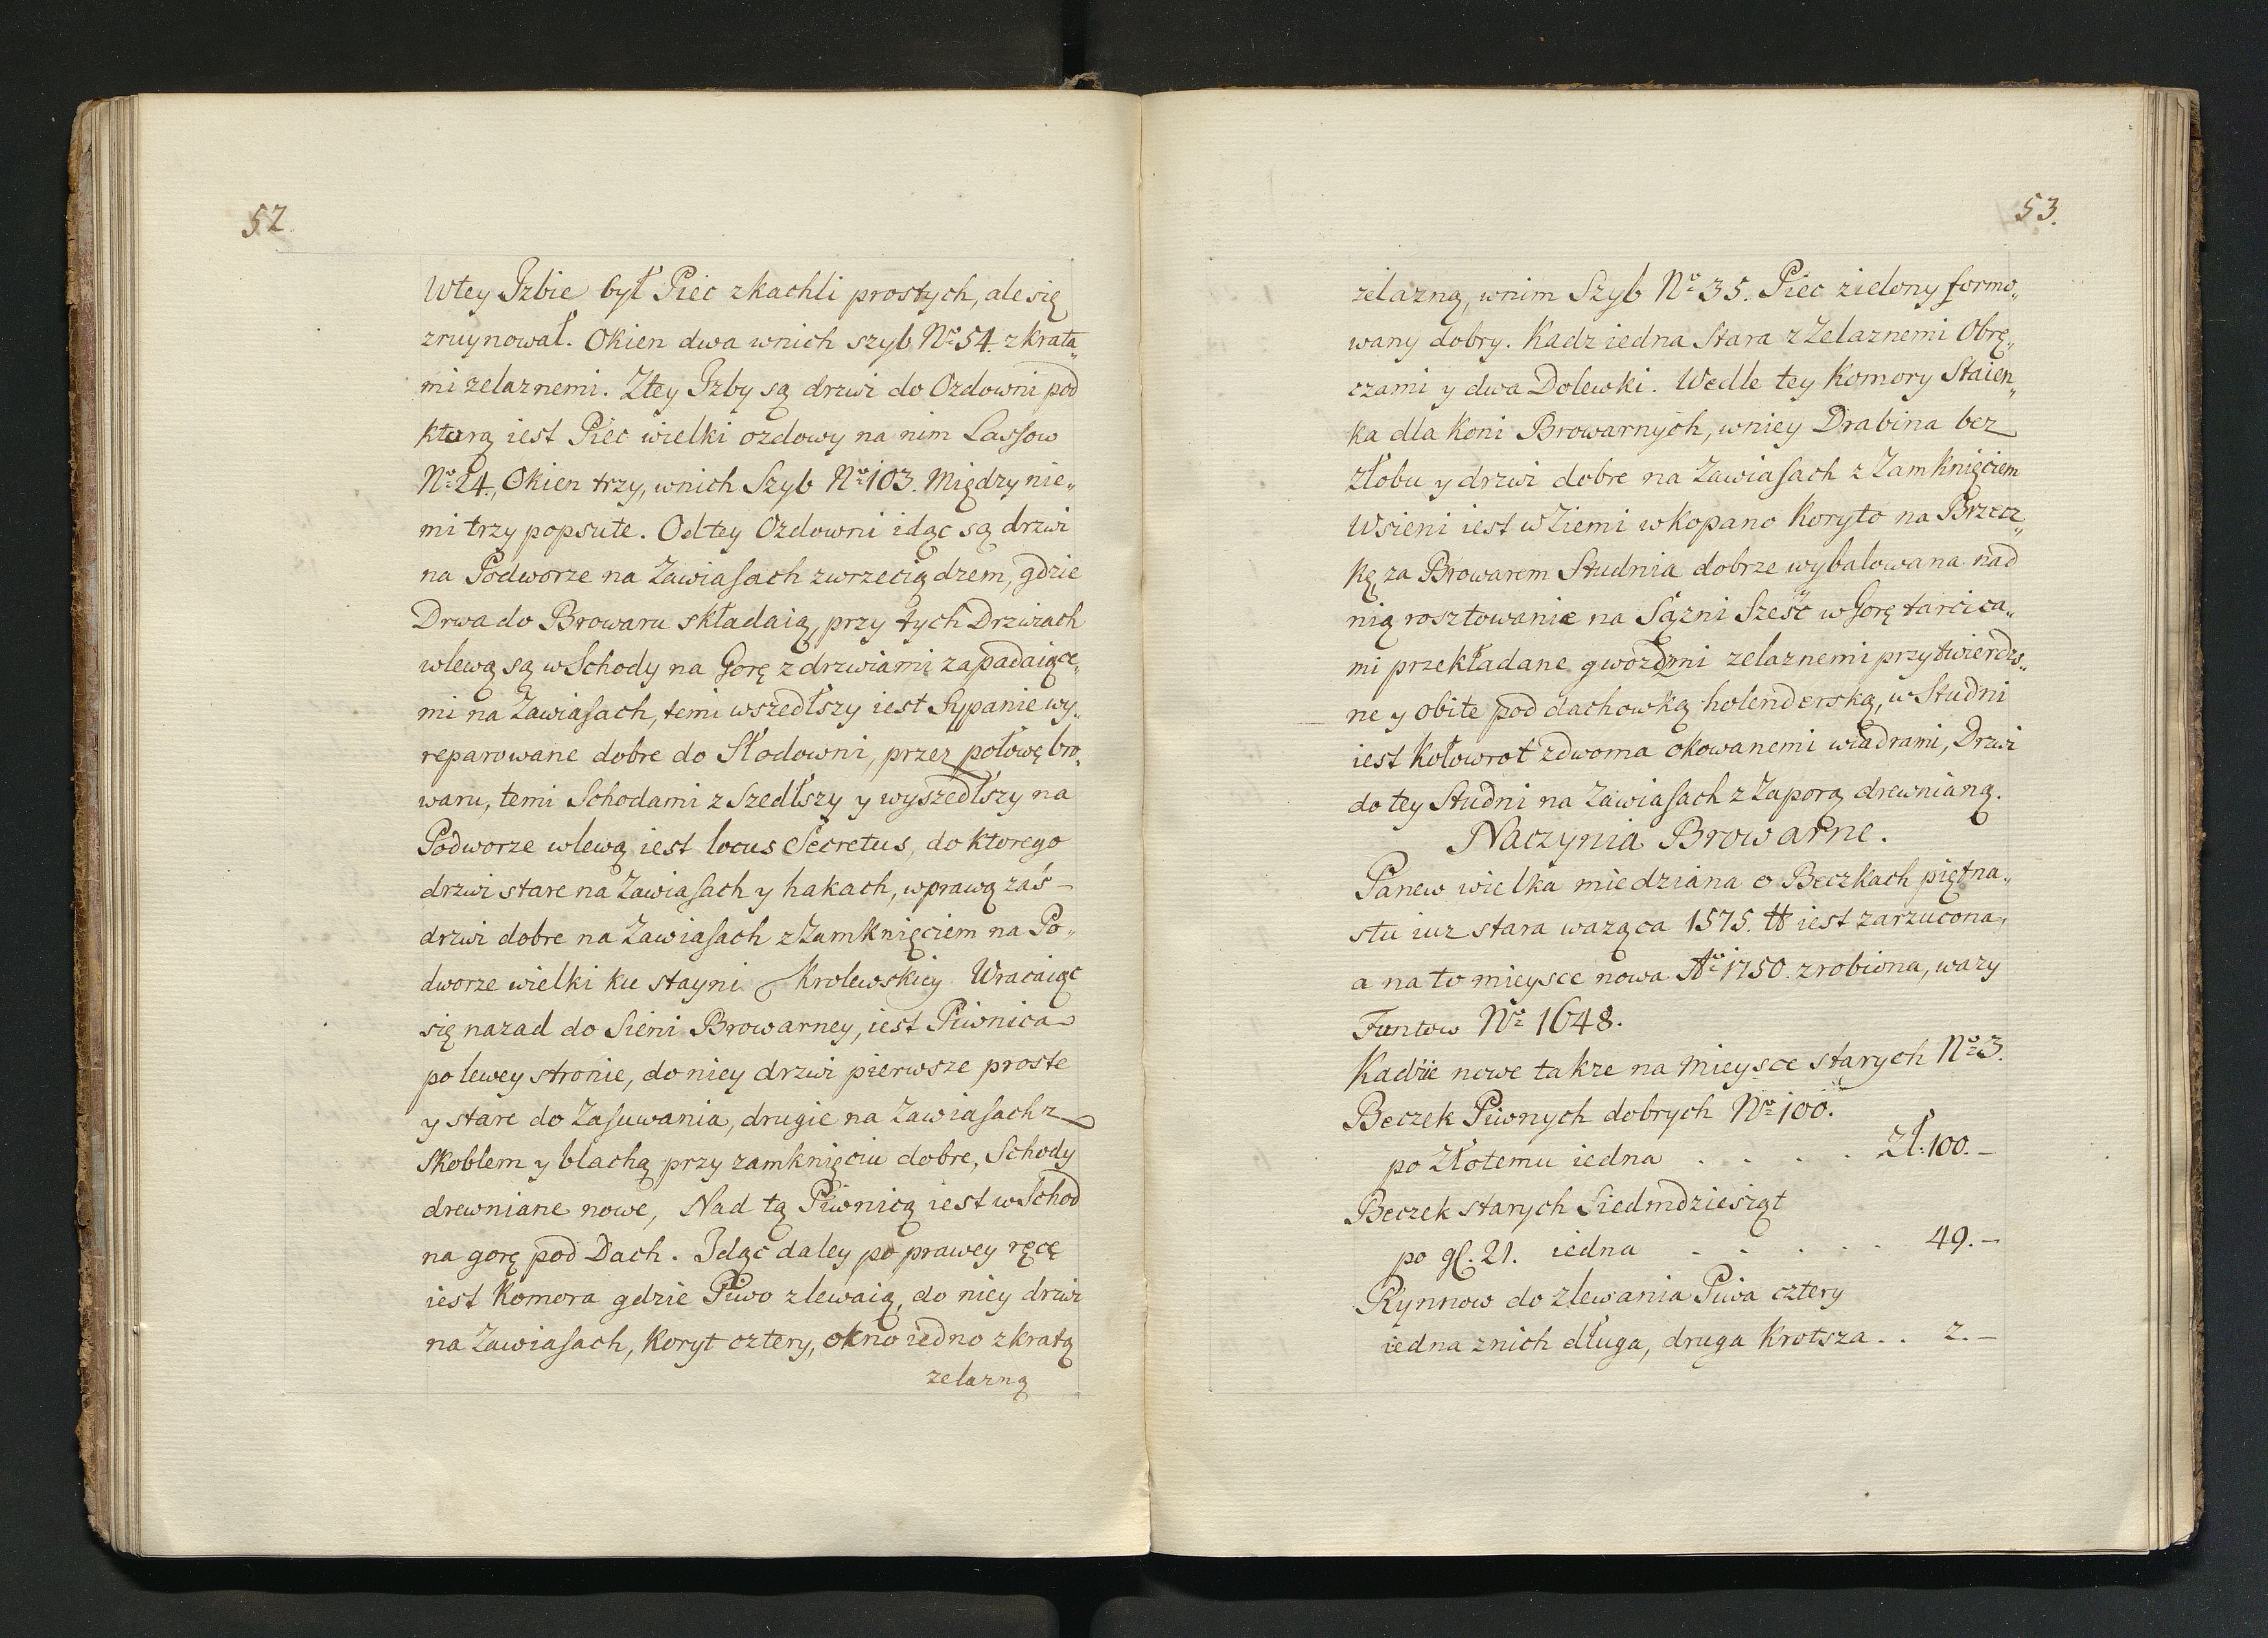 52.
Wtey Izbie był Piec zkachli prostych, ale się
zruynował. Okien dwa wnich szyb No 54. zkrata„
mi zelaznemi. Ztey Izby są drzwi do Ozdowni pod
ktorą iest Piec wielki ozdowy na nim Lassow
No 24., Okien trzy, wnich Szyb No 103. Między nie„
mi trzy popsute. Odtey Ozdowni idąc są drzwi
na Podworze na Zawiasach zwrzeciądzem, gdzie
Drwa do Browaru składaią, przy tych Drzwiach
wlewą są wSchody na Gorę z drzwiami zapadaiące„
mi na Zawiasach, temi wszedłszy iest Sypanie wy„
reparowane dobre do Słodowni, przez połowę bro„
waru, temi Schodami z Szedłszy y wyszedłszy na
Podworze wlewą iest locus Secretus, do ktorego
drzwi stare na Zawiasach y hakach, wprawą zaś –
drzwi dobre na Zawiasach z Zamknięciem na Po„
dworze wielki ku stayni Krolewskiey. Wracaiąc
się nazad do Sieni Browarney, iest Piwnica
po lewey stronie, do niey drzwi pierwsze proste
y stare do Zasuwania, drugie na Zawiasach z
Skoblem y blachą przy zamknięciu dobre, Schody
drewniane nowe, Nad tą Piwnicą iest wSchod
na gorę pod Dach. Idąc daley po prawey ręcę
iest Komora gdzie Piwo zlewaią, do niey drzwi
na Zawiasach, Koryt cztery, okno iedno zkratą
zelazną
53.
zelazną, wnim Szyb No 35. Piec zielony formo„
wany dobry. Kadz iedna Stara z Zelaznemi Obrę„
czami y dwa Dolewki. Wedle tey Komory Staien„
ka dla Koni Browarnych, wniey Drabina bez
złobu y drzwi dobre na Zawiasach z Zamknięciem
Wsieni iest w Ziemi wkopano Koryto na Brzecz„
kę, za Browarem Studnia dobrze wybalowana nad
nią rosztowanie na Sązni Sześć w Gorę tarcica„
mi przekładane gwozdzmi zelaznemi przytwierdzo„
ne y obite pod dachowką holenderską, w Studni
iest Kołowrot zdwoma okowanemi wiadrami, Drzwi
do tey Studni na Zawiasach z Zaporą drewnianą.
Naczynia Browarne.
Panew wielka miedziana o Beczkach piętna„
stu iuz stara waząca 1575. ℔ iest zarzucona,
a na to mieysce nowa Ao 1750. zrobiona, wazy
Funtow No 1648.
Kadzie nowe takze na mieysce starych No 3.
Beczek Piwnych dobrych No 100.
po Złotemu iedna . . . . Zł: 100. –
Beczek starych Siedmdziesiąt
po gl. 21. iedna . . . . . 49. –
Rynnow do zlewania Piwa cztery
iedna znich długa, druga krotsza . . 2. –